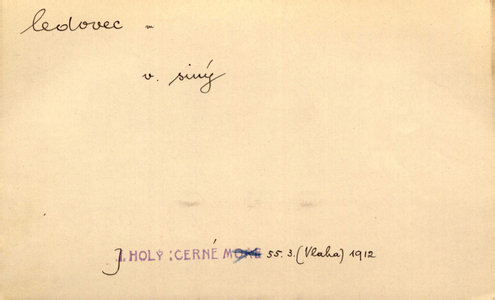 ledovec -
v. siný
J. HOLÝ : ČERNÉ MOŘE 55. 3. (Vlaha) 1912